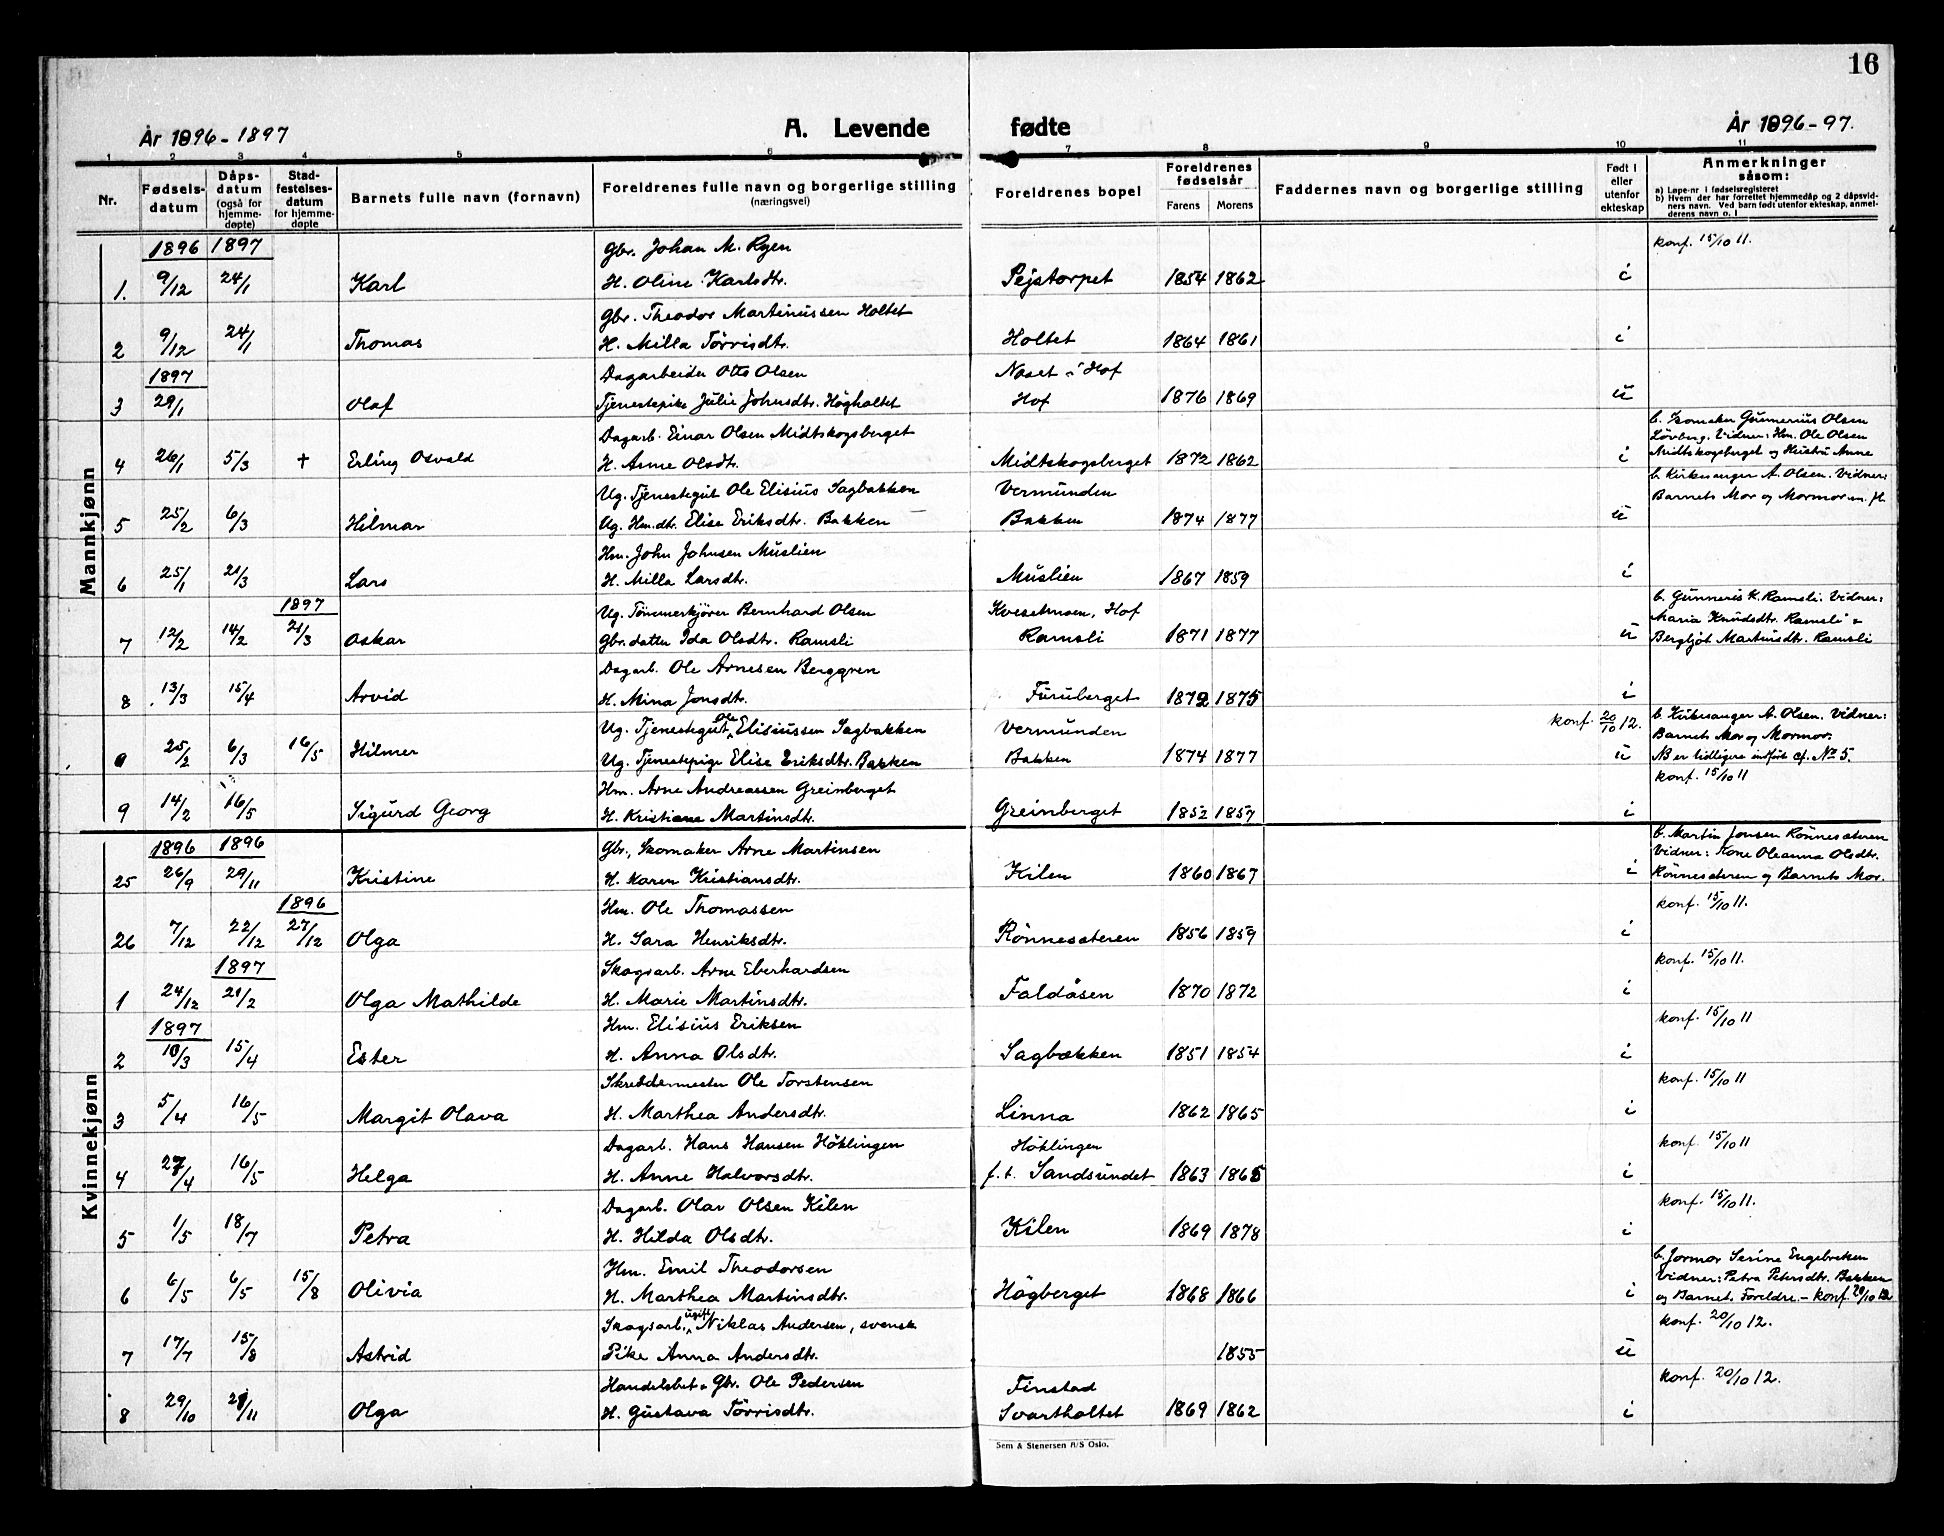 16
År 1896 - 1897
A. Levende fødte
År 1896 - 97.
1 2 3 4 5 6 7 8 9 10 11
Nr.
Fødsels-
datum
Dåps-
datum
(også for
hjemme-
døpte)
Stad-
festelses-
datum
for hjemme-
døpte
Barnets fulle navn (fornavn)
Foreldrenes fulle navn og borgerlige stilling
(næringsvei)
Foreldrenes bopel
Foreldrenes
fødselsår
Farens Morens
Faddernes navn og borgerlige stilling
Født i
eller
utenfor
ekteskap
Anmerkninger
såsom:
a) Løpe-nr. i fødselsregisteret
b) Hvem der har forrettet hjemmedåp og 2 dåpsvid-
ners navn. Ved barn født utenfor ekteskap, anmel-
derens navn o. l.
Mannkjønn
1896 1897 Gbr. Johan M. Ryen konf. 15/10 11.
1. 9/12 24/1 Karl H. Oline Karlsdtr. Pejstorpet 1854 1862 i
Gbr. Theodor Martinussen Holtet
2 9/12 24/1 Thomas H. Milla Törrisdtr. Holtet 1864 1861 i
1897 Dagarbeider Otto Olsen Noset i Hof
3 29/1 Olaf Tjenestepike Julie Johnsdtr. Högholtet Hof 1876 1869 u
Dagarb. Einar Olsen Midtskogsberget b. Gunnerius Olsen
Lövberg. Vidner: Hm. Ole Olsen
4 26/1 5/3 + Erling Osvald H. Anne Olsdtr. Midtskogsberget 1872 1862 i Midtskogsberget og Hustru Anne
Ug. Tjenestegut Ole Elisius Sagbakken Vermunden b. Kirkesanger A. Olsen. Vidner:
Barnets Mor og Mormor m. fl.
5 25/2 6/3 Hilmar Ug. Hm.dtr. Elise Eriksdtr. Bakken Bakken 1874 1877 u
Hm. John Johnsen Muslien
6 25/1 21/3 Lars H. Milla Larsdtr. Muslien 1867 1859 i
1897 Ug. Tömmerkjörer Bernhard Olsen Hof b. Gunneris K. Ramsli. Vidner:
Maria Knudsdtr. Ramsli &
7 12/2 14/2 21/3 Oskar Gbr. datter Ida Olsdtr. Ramsli Ramsli 1871 1877 u Bergljot Martinsdtr. Ramsli
Dagarb. Ole Arnesen Berggren
8 13/3 15/4 Arvid H. Mina Jonsdtr. Furuberget 1872 1875 i
Ug. Tjenestegut Ole Elisiussen Sagbakken Vermunden konf. 20/10 12. b. Kirkesanger A. Olsen. Vidner:
Barnets Mor og Mormor.
25/2 6/3 16/5 Hilmer Ug. Tjenestepige Elise Eriksdtr. Bakken Bakken 1874 1877 u NB er tidligere indført cf. No 5.
Hm. Arne Andreassen Greinberget konf. 15/10 11
9 14/2 16/5 Sigurd Georg H. Kristiane Martinsdtr. Greinberget 1852 1857 i
Kvinnekjønn
1896 1896 Gbr., Skomaker Arne Martinsen b. Martin Jonsen Rönnesæteren
Vidner: Kone Oleanna Olsdtr.
25 26/9 29/11 Kristine H. Karen Kristiansdtr. Kilen 1860 1867 i Rönnesæteren og Barnets Mor.
1896 Hm. Ole Thomassen konf. 15/10 11.
26 7/12 22/12 27/12 Olga H. Sara Henriksdtr. Rönnesæteren 1856 1859 i
1897 Skogsarb. Arne Eberhardsen konf. 15/10 11.
1 24/12 21/2 Olga Mathilde H. Marie Martinsdtr. Faldåsen 1870 1872 i
1897 Hm. Elisius Eriksen konf. 15/10 11
2 10/3 15/4 Ester H. Anna Olsdtr. Sagbækken 1851 1854 i
Skreddermester Ole Torstensen konf. 15/10 11
3 5/4 16/5 Margit Olava H. Marthea Andersdtr. Linna 1862 1865 i
Dagarb. Hans Hansen Höklingen Höklingen konf. 15/10 11
4 27/4 16/5 Helga H. Anne Halvorsdtr. f.t. Sandsundet 1863 1865 i
Dagarb. Olav Olsen Kilen konf. 15/10 11.
5 1/5 18/7 Petra H. Hilda Olsdtr. Kilen 1869 1878 i
Hm. Emil Theodorsen b. Jormor Serine Engebreken
Vidner: Petra Petersdtr. Bakken
6 6/5 6/5 15/8 Olivia H. Marthea Martinsdtr. Högberget 1868 1866 i og Barnets Foreldre. - konf. 20/10 12
Skogsarb., ugift Niklas Andersen, svensk konf. 20/10 12.
7 17/7 15/8 Astrid Pike Anna Andersdtr. 1855 u
Handelsbet. & Gbr. Ole Pedersen Finstad konf. 20/10 12.
8 29/10 28/11 Olga H. Gustava Törrisdtr. Svartholtet 1869 1862 i
Sem & Stenersen A/S Oslo.